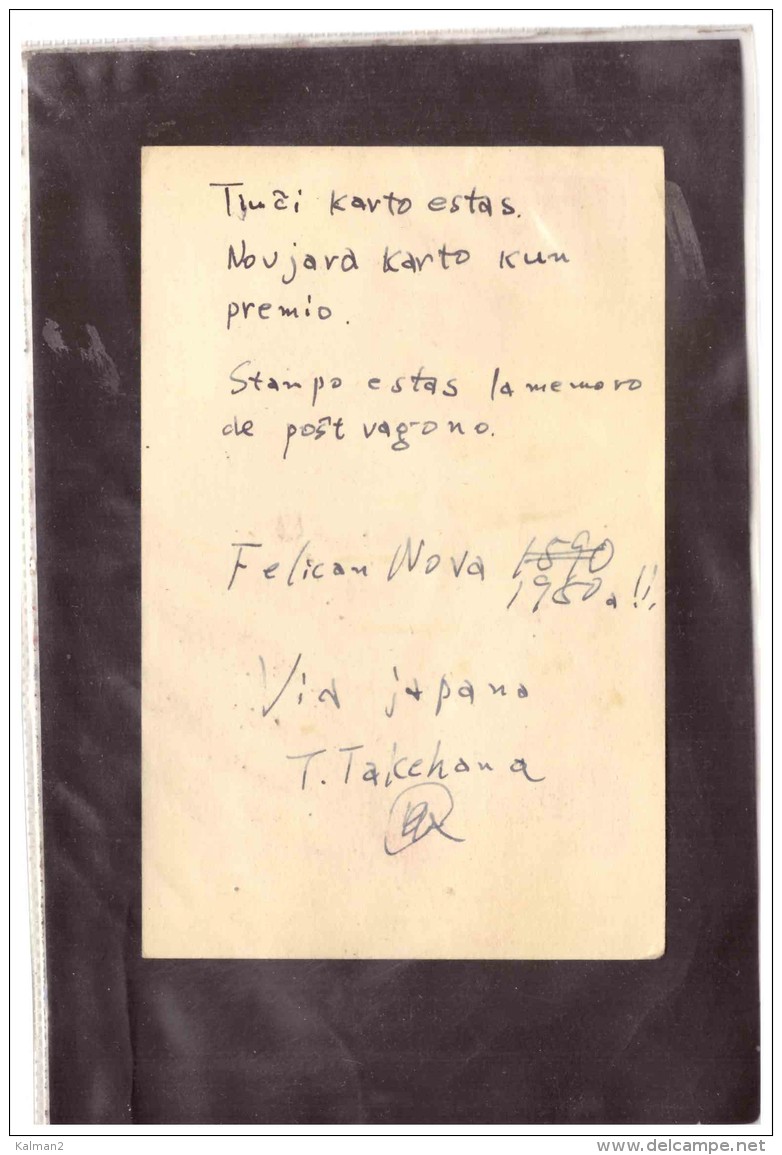 Tiuĉi karto estas.
Novjara karto kun
premio.
Stanpo estas la memoro
de poŝt vagono.
Felican Nova 1890
1980a!!,
Via japano
T. Takehana
Kalman2
delcampe.net